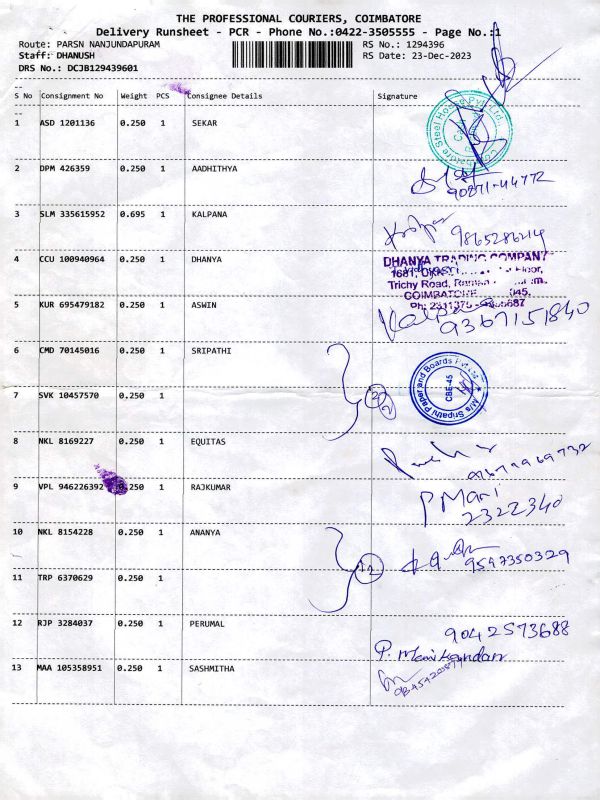 THE PROFESSIONAL COURIERS, COIMBATORE
Delivery Runsheet - PCR - Phone No.:0422-3505555 - Page No.:1
Route: PARSN NANJUNDAPURAM
RS No.: 1294396
Staff: DHANUSH
RS Date: 23-Dec-2023
DRS No.: DCJB129439601
S No Consignment No Weight PCS Consignee Details Signature
1 ASD 1201136 0.250 1 SEKAR
2 DPM 426359 0.250 1 AADHITHYA
90871-44772
3 SLM 335615952 0.695 1 KALPANA
4 CCU 100940964 0.250 1 DHANYA
DHANYA TRADING COMPANY
Floor,
Trichy Road,
COIMBATORE 045.
5 KUR 695479182 0.250 1 ASWIN
Kalpana
9367151840
6 CMD 70145016 0.250 1 SRIPATHI
M/s Sripathi Paper and Boards Pvt Ltd
CBE-45
7 SVK 10457570 0.250 1
8 NKL 8169227 0.250 1 EQUITAS
9 VPL 946226392 0.250 1 RAJKUMAR
P Mani
2322340
10 NKL 8154228 0.250 1 ANANYA
9597350329
11 TRP 6370629 0.250 1
12 RJP 3284037 0.250 1 PERUMAL
9042573688
P. Manikandan
13 MAA 105358951 0.250 1 SASHMITHA